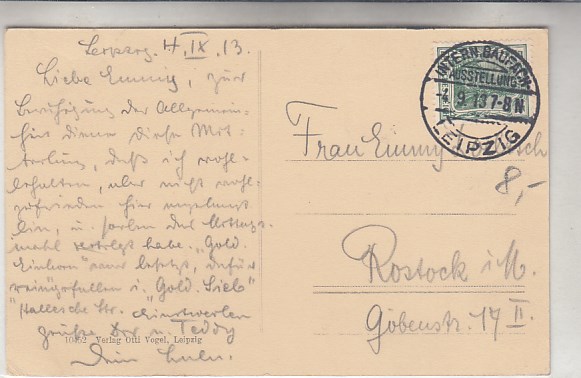 Leipzig. 4. IX. 13.
Liebe Emmy, zur
Beruhigung der Allgemein-
heit diene diese Mit-
teilung, daß ich wohl-
erhalten, aber nicht wohl-
zufrieden hier angelangt
bin, u. soeben das Mittags-
mahl vertilgt habe. „Gold.
Einhorn" war besetzt, dafür
reingefallen i. "Gold. Sieb"
Hallesche Str. Einstweilen
grüße Dor u. Teddy
Dein
10452 Verlag Ottl Vogel, Leipzig
INTERN. BAUFACH-
AUSSTELLUNG
4. 9. 13 7-8 N
LEIPZIG
Frau Emmy
8,-
Rostock i. M.
Göbenstr. 17 II.